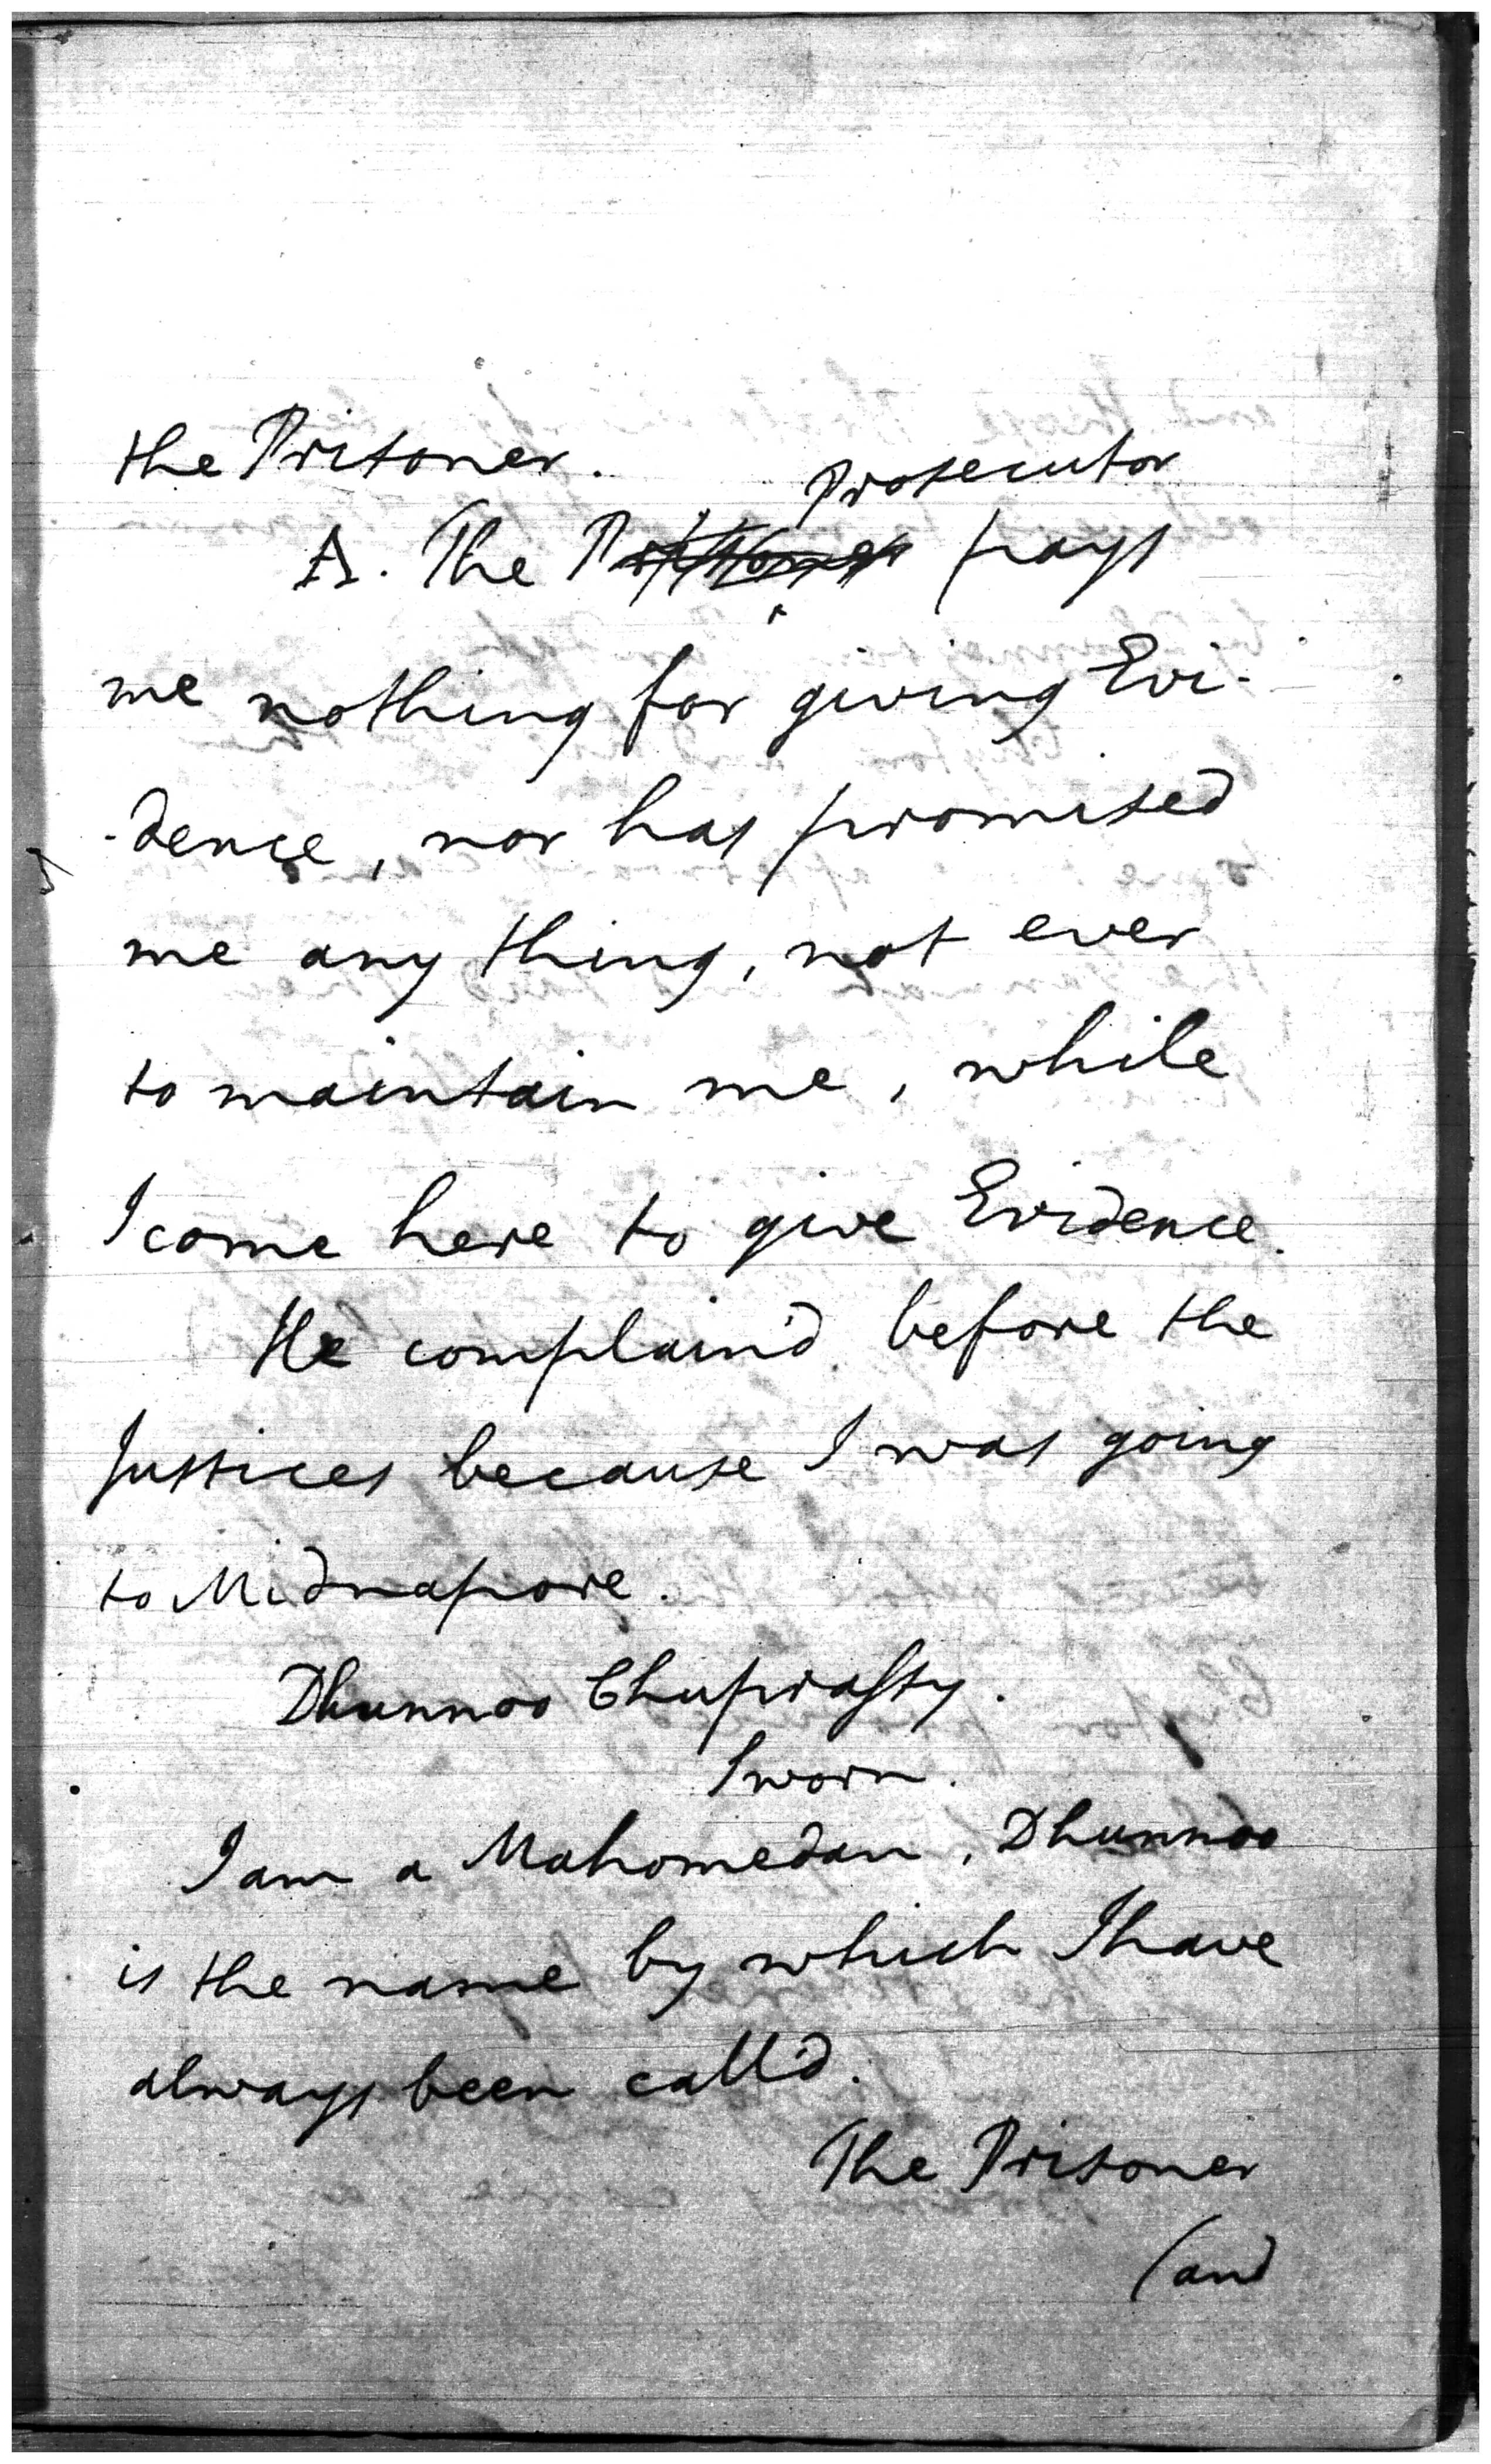 the Prisoner.
Prosecutor
A. The Prisoner pays
me nothing for giving Evi-
-dence, nor has promised
me any thing, not ever
to maintain me, while
I come here to give Evidence.
He complain'd before the
Justices because I was going
to Midnapore.
Dhunnoo Chuprassy.
Sworn.
I am a Mahomedan, Dhunnoo
is the name by which I have
always been call'd.
The Prisoner
(and